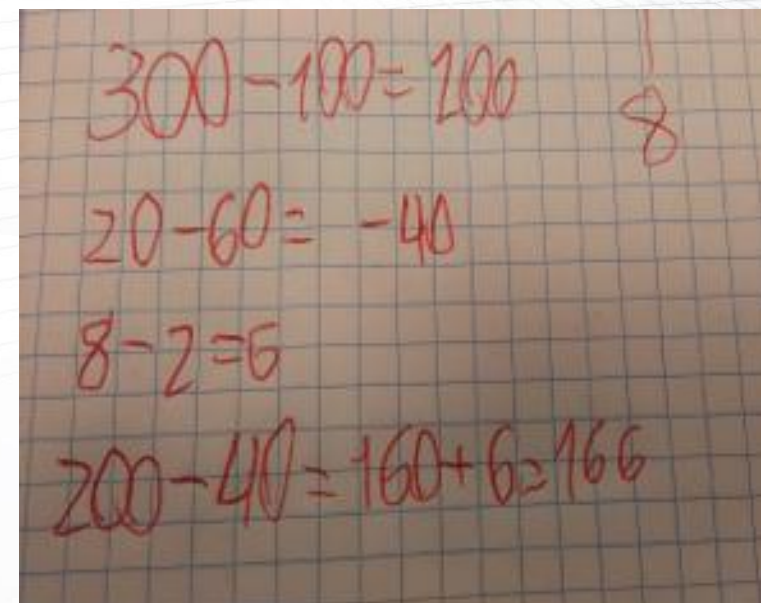 300-100=200
8
20-60= -40
8-2=6
200-40=160+6=166